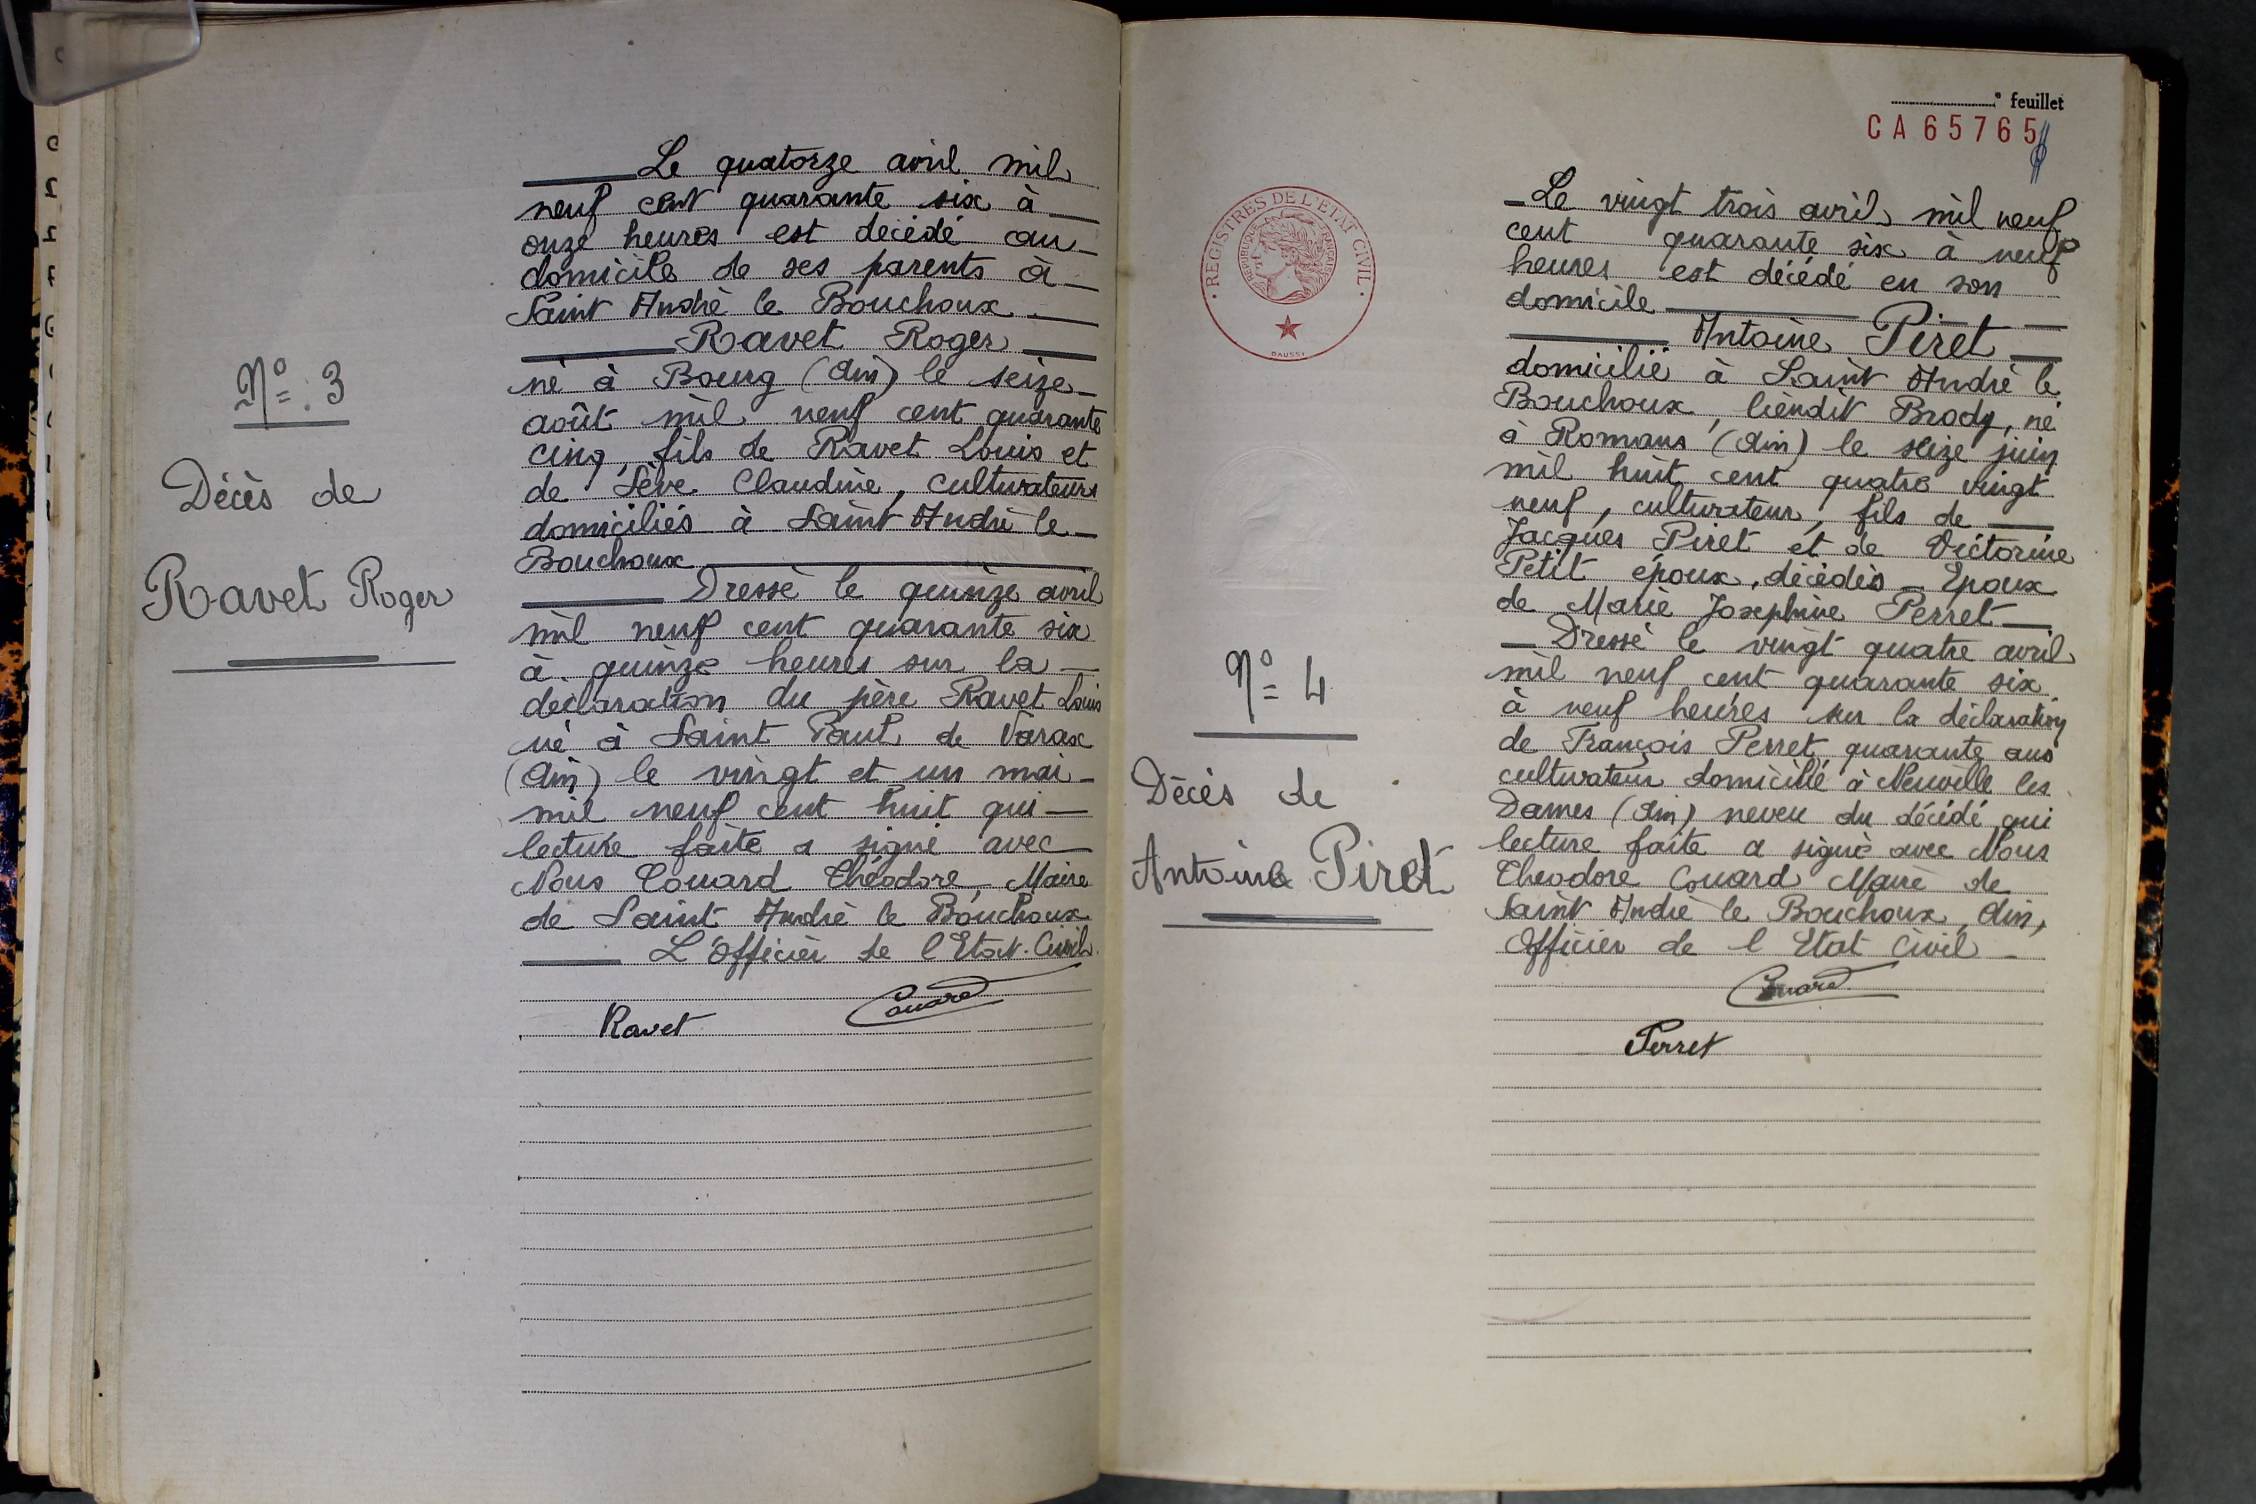 N° 3
Décès de
Ravet Roger
Le quatorze avril mil
neuf cent quarante six à
onze heures est décédé au
domicile de ses parents à
Saint André le Bouchoux
Ravet Roger
né à Bourg (Ain) le seize
août mil neuf cent quarante
cinq, fils de Ravet Louis et
de Sève Claudine, cultivateurs
domiciliés à Saint André le
Bouchoux
Dressé le quinze avril
mil neuf cent quarante six
à quinze heures sur la
déclaration du père Ravet Louis
né à Saint Paul de Varax
(Ain) le vingt et un mai
mil neuf cent huit qui
lecture faite a signé avec
Nous Couard Théodore, Maire
de Saint André le Bouchoux
L'Officier de l'Etat-Civil
Ravet Couard
° feuillet
CA65765
REGISTRES DE L'ETAT CIVIL
REPUBLIQUE FRANÇAISE
DAUSSI
N° 4
Décès de
Antoine Piret
Le vingt trois avril mil neuf
cent quarante six à neuf
heures est décédé en son
domicile
Antoine Piret
domicilié à Saint André le
Bouchoux, lieudit Brody, né
à Romans (Ain) le seize juin
mil huit cent quatre vingt
neuf, cultivateur, fils de
Jacques Piret et de Victorine
Petit époux décédés - Epoux
de Marie Joséphine Perret
Dressé le vingt quatre avril
mil neuf cent quarante six
à neuf heures sur la déclaration
de François Perret quarante ans
cultivateur domicilié à Neuville les
Dames (Ain) neveu du décédé qui
lecture faite a signé avec Nous
Théodore Couard Maire de
Saint André le Bouchoux, Ain,
Officier de l Etat Civil
Couard
Perret